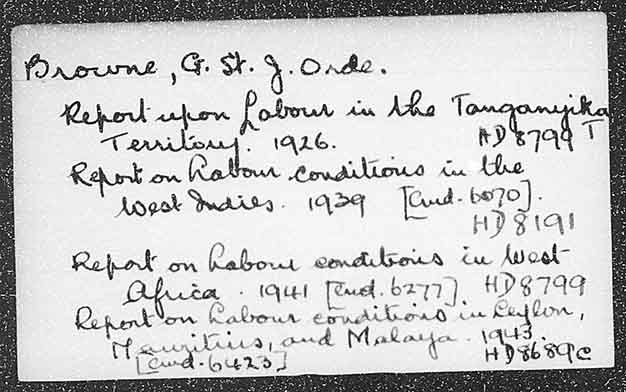 Browne, G. St. J. Orde.
Report upon Labour in the Tanganyika
Territory. 1926. HD 8799 T
Report on Labour conditions in the
West Indies. 1939 [Cmd. 6070].
HD 8191
Report on Labour conditions in West
Africa. 1941 [Cmd. 6277] HD 8799
Report on Labour conditions in Ceylon,
Mauritius, and Malaya. 1943.
[Cmd. 6423] HD 8689 C